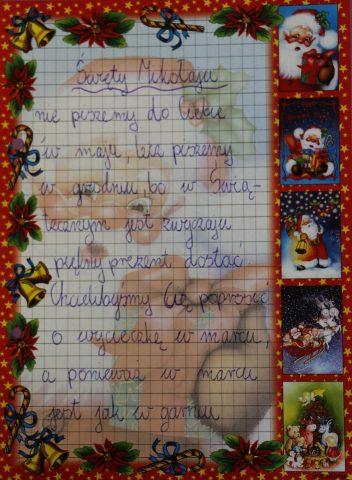 Święty Mikołaju
nie piszemy do Ciebie
w maju, lecz piszemy
w grudniu, bo w Świą-
tecznym jest zwyczaju
piękny prezent dostać.
Chcielibyśmy Cię poprosić
o wycieczkę w marcu,
a ponieważ w marcu
jest jak w garncu